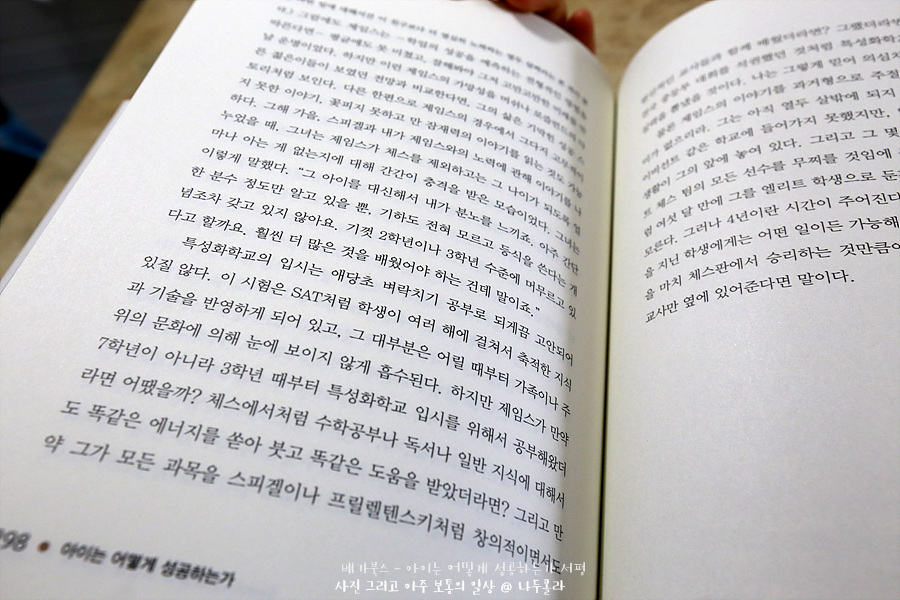 다.) 그럼에도 제임스는
바른다면— 평균에도 못 미쳤고, 잘해봐야 그저 고만고만한 미래를 만
날 운명이었다. 하지만 이런 제임스의 가망성을
은 젊은이들이 보였던 전망과 비교한다면, 그의 삶은 기막힌 성공 스
토리처럼 보인다. 다른 한편으로 제임스의 경우에서 그다지 고무적이
지 못한 이야기, 꽃피지 못하고 만 잠재력의 이야기를 읽는 것도 가능
하다. 그해 가을, 스피겔과 내가 제임스와의 노력에 관해 이야기를 나
누었을 때, 그녀는 제임스가 체스를 제외하고는 그 나이가 되도록 얼
마나 아는 게 없는지에 대해 간간이 충격을 받은 모습이었다. 그녀는
이렇게 말했다. “그 아이를 대신해서 내가 분노를 느끼죠. 아주 간단
한 분수 정도만 알고 있을 뿐, 기하도 전혀 모르고 등식을 쓴다는 개
념조차 갖고 있지 않아요. 기껏 2학년이나 3학년 수준에 머무르고 있
다고 할까요. 훨씬 더 많은 것을 배웠어야 하는 건데 말이죠.”
특성화학교의 입시는 애당초 벼락치기 공부로 되게끔 고안되어
있질 않다. 이 시험은 SAT처럼 학생이 여러 해에 걸쳐서 축적한 지식
과 기술을 반영하게 되어 있고, 그 대부분은 어릴 때부터 가족이나 주
위의 문화에 의해 눈에 보이지 않게 흡수된다. 하지만 제임스가 만약
7학년이 아니라 3학년 때부터 특성화학교 입시를 위해서 공부해왔더
라면 어땠을까? 체스에서처럼 수학공부나 독서나 일반 지식에 대해서
도 똑같은 에너지를 쏟아 붓고 똑같은 도움을 받았더라면? 그리고 만
약 그가 모든 과목을 스피겔이나 프릴렐텐스키처럼 창의적이면서도
298 ● 아이는 어떻게 성공하는가
교사들과 함께 배웠더라면? 그랬더라면
중등부 대회를 석권했던 것처럼 특성화학교
뽐냈을 것이다. 나는 그렇게 믿어 의심치
물론 제임스의 이야기를 과거형으로 주절
이가 없으리라. 그는 아직 열두 살밖에 되지
이버선트 같은 학교에 들어가지 못했지만,
생활이 그의 앞에 놓여 있다. 그리고 그 몇
트 체스 팀의 모든 선수를 무찌를 것임에
럼 여섯 달 만에 그를 엘리트 학생으로 둔갑
모른다. 그러나 4년이란 시간이 주어진다
을 지닌 학생에게는 어떤 일이든 가능해
을 마치 체스판에서 승리하는 것만큼이
교사만 옆에 있어준다면 말이다.
베가북스 - 아이는 어떻게 성공하는가 서평
사진 그리고 아주 보통의 일상 @ 나두몰라